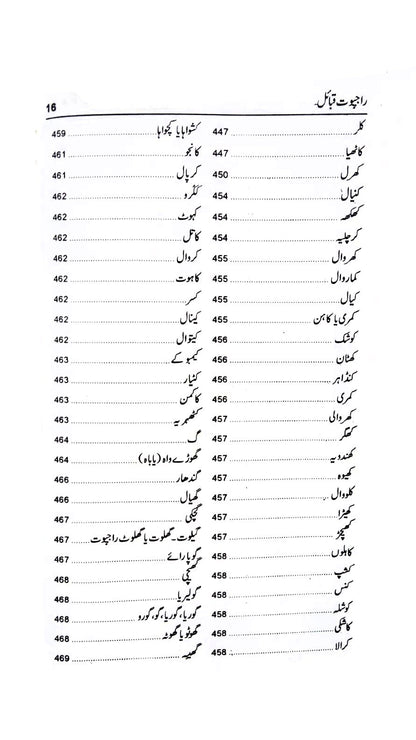 راجپوت قبائل۔ 16
کلر 447
کاٹھیا 447
کھرل 450
کنیال 454
کھکھہ 454
کرچلیہ 454
کھروال 455
کماروال 455
کیال 455
کمری یا کاہن 455
کوشک 456
کھٹان 456
کنڈاہر 456
کمری 456
کھروالی 457
کھکر 457
کھندویہ 457
کھیوہ 457
کلووال 457
کھیڑا 457
کھیچڑ 457
کاہلوں 458
کشپ 458
کنس 458
کوشلہ 458
کاشکی 458
کرالا 458
کشواہا یا کچھواہا 459
کانجو 461
کرپال 461
کنڈرو 462
کہوٹ 462
کاتل 462
کروال 462
کاہوت 462
کسر 462
کینال 462
کیتوال 462
کیمبو کے 463
کٹیار 463
کاکمن 463
کٹھہریہ 463
گ 464
گھوڑے واہ (یا باہ) 464
گندھار 466
گھیال 466
گچکی 467
گیلوت۔گھلوت یا گھلوٹ راجپوت 467
گوپارائے 467
468
گولیریا 468
گوریا، گوریا، گو، گورو 468
گھوٹو یا گھوٹہ 468
گھیبہ 469